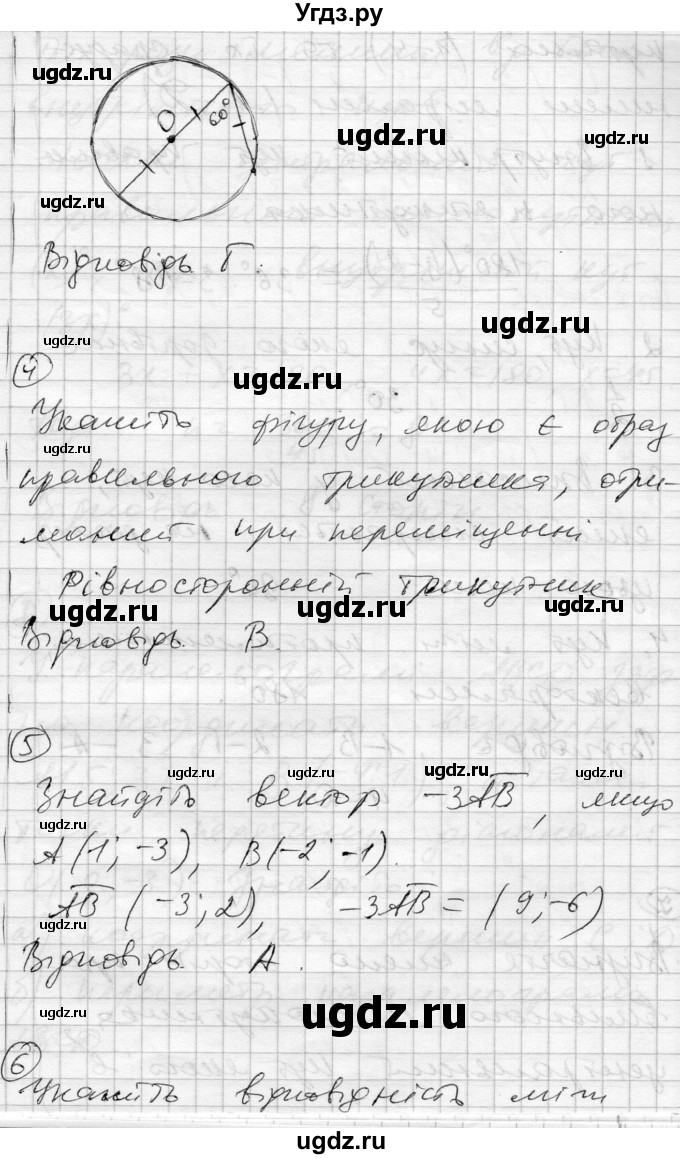 Угдз.ру
ugdz.ru
O
60°
ugdz.ru
ugdz.ru
ugdz.ru
Відповідь Г.
ugdz.ru
ugdz.ru
4
ugdz.ru
Укажіть фігуру, якою є образ
ugdz.ru
правильного трикутника, отри-
маний при переміщенні
Рівносторонній трикутник
ugdz.ru ugdz.ru ugdz.ru
Відповідь В.
5
ugdz.ru ugdz.ru ugdz.ru ugdz.ru
Знайдіть вектор -3AB, якщо
A(1; -3), B(-2; -1).
AB (-3; 2), -3AB = (9; -6)
ugdz.ru ugdz.ru
Відповідь А.
ugdz.ru
6
Укажіть відповідність між
ugdz.ru